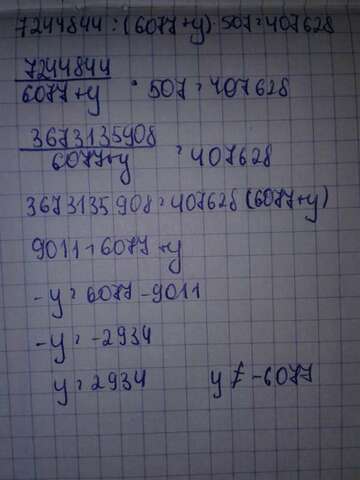 7244844 : (6077+y) · 507 = 407628
7244844
6077+y · 507 = 407628
3673135908
6077+y = 407628
3673135908 = 407628 (6077+y)
9011 = 6077+y
-y = 6077 - 9011
-y = -2934
y = 2934 y ≠ -6077